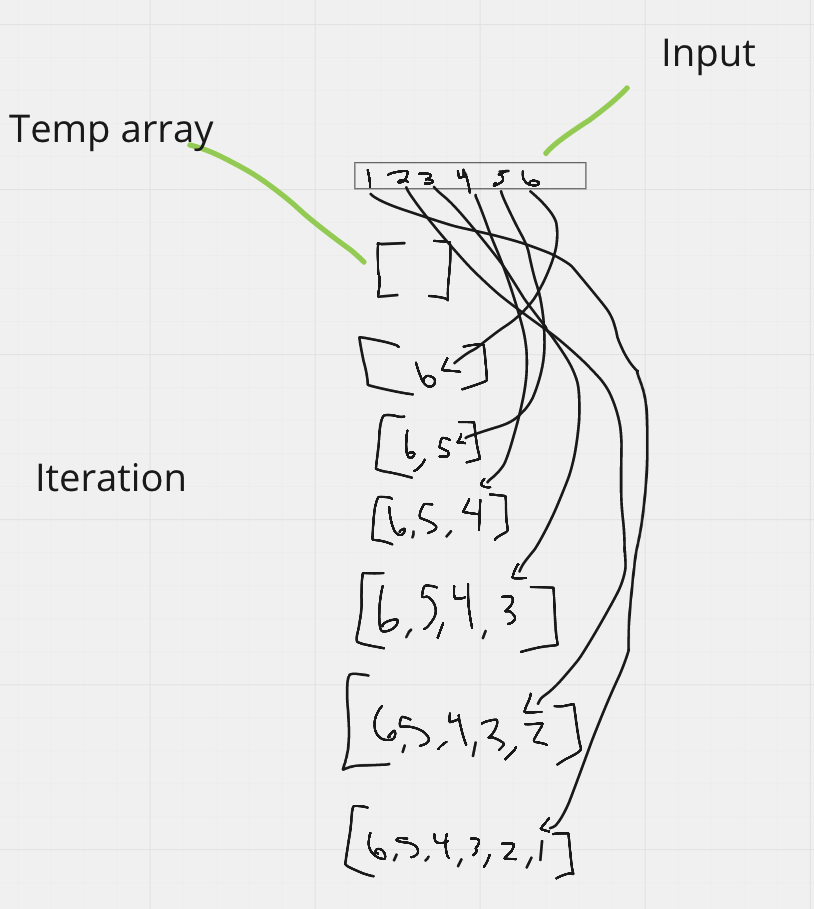 Input
Temp array
1 2 3 4 5 6
[ ]
[ 6 ]
[6, 5]
Iteration
[6, 5, 4]
[6, 5, 4, 3]
[6, 5, 4, 3, 2]
[6, 5, 4, 3, 2, 1]